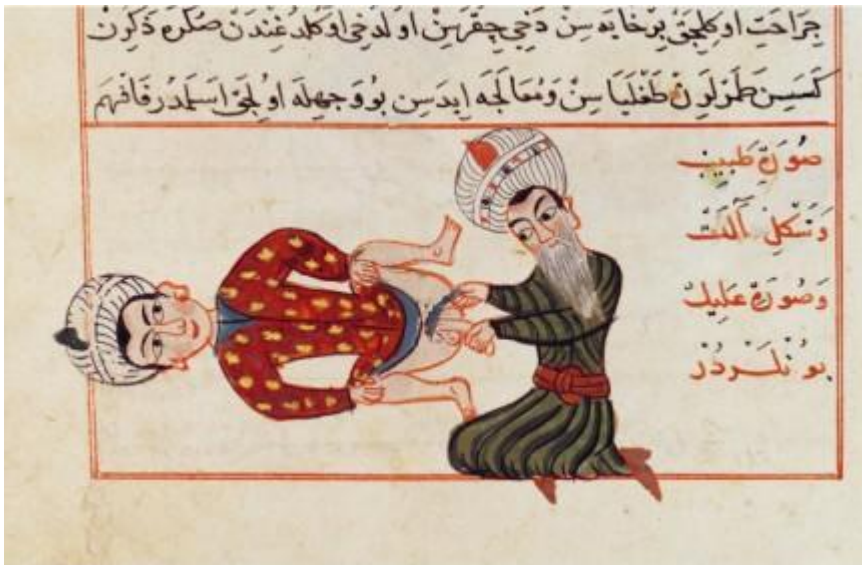 جراحت اوكلجق برخايه سن دخي چقرسن اولدخي اوكلدغندن صكره ذكرن
كسسن طمرلرن طغليا سن ومعالجه ايدسن بو وجهله اولجق اسلمدر فافهم
صورة طبيب
وشكل آلت
وصورة عليل
بونلردر